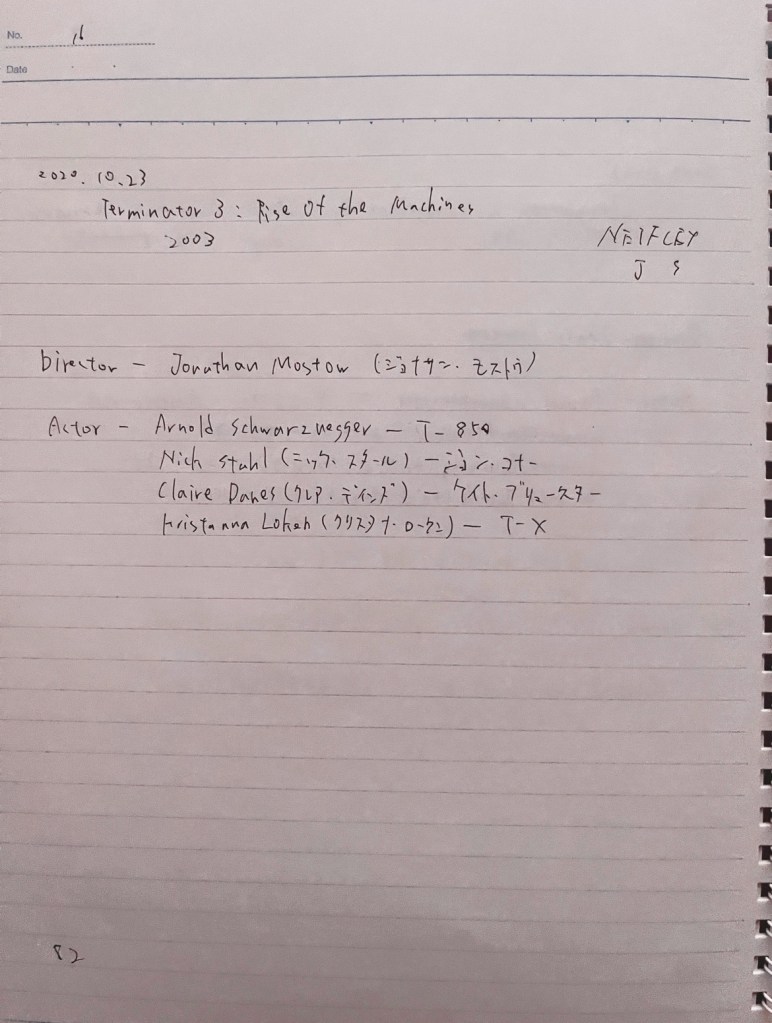 No. 16
Date
2020.10.23
Terminator 3: Rise Of the Machines
2003
NETFLIX
J S
Director - Jonathan Mostow (ジョナサン・モストウ)
Actor - Arnold Schwarznegger - T-850
Nick Stahl (ニック・スタール) - ジョン・コナー
Claire Danes (クレア・デインズ) - ケイト・ブリュースター
Kristanna Loken (クリスタナ・ローケン) - T-X
82